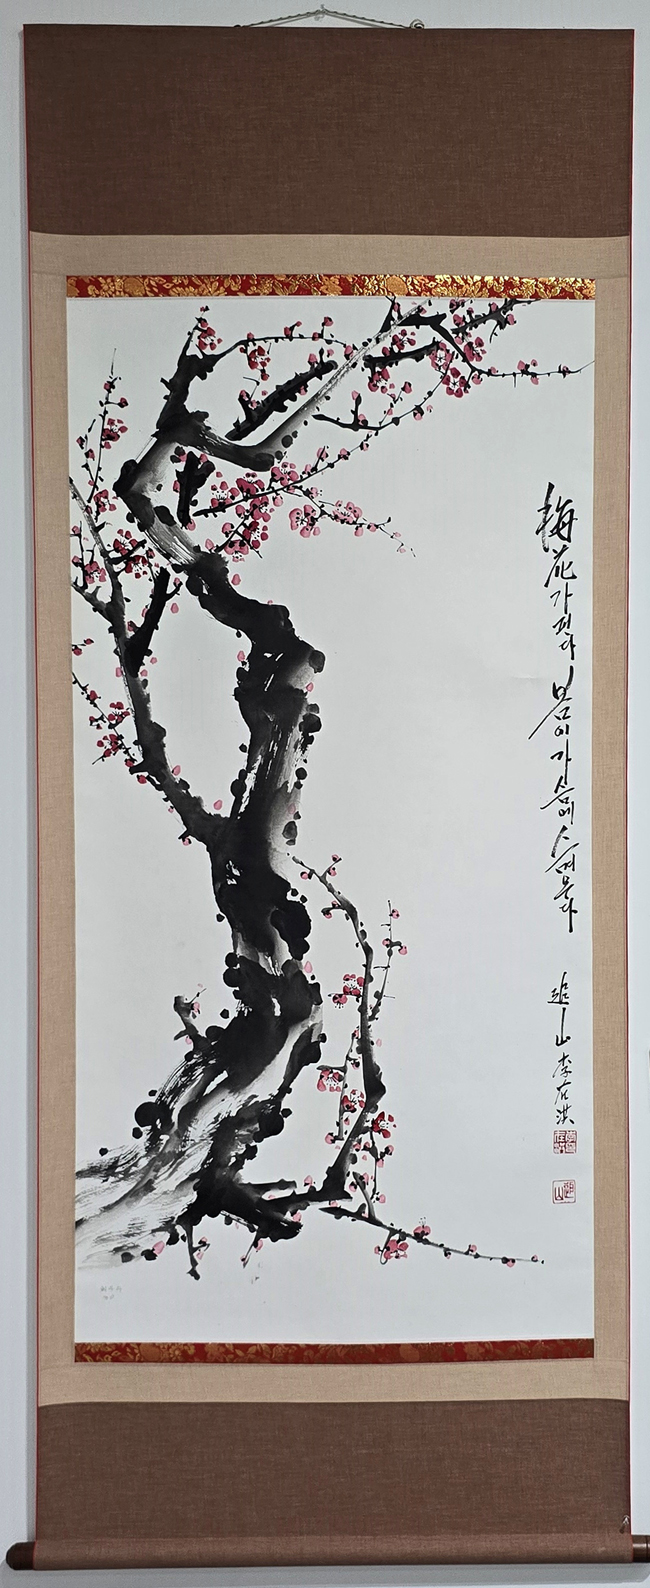 梅花가 핀다 봄이 가슴에 스며온다
追山 李右洪